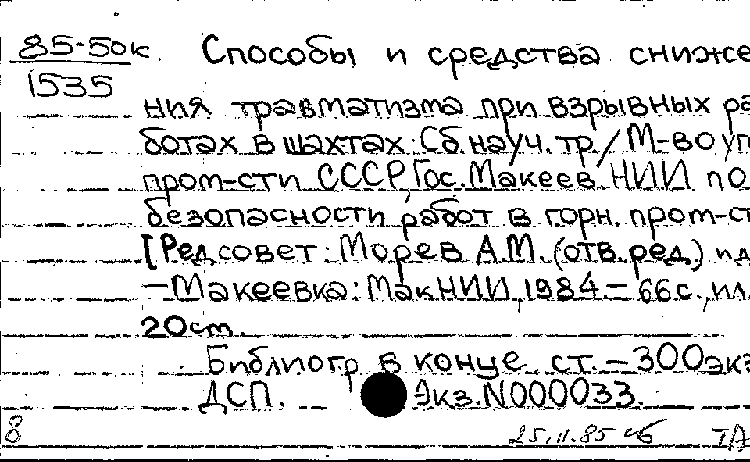 85-50к. Способы и средства сниже
1535
ния травматизма при взрывных ра
ботах в шахтах: Сб. науч. тр / М-во уг
пром-сти СССР, Гос. Макеев НИИ по
безопасности работ в горн. пром-ст
[Редсовет: Морев А.М. (отв. ред.) и д
—Макеевка: МакНИИ, 1984.— 66с., ил.
20cm.
Библиогр в конце ст. — 300экз
ДСП. Экз. N000033.
8 25.11.85